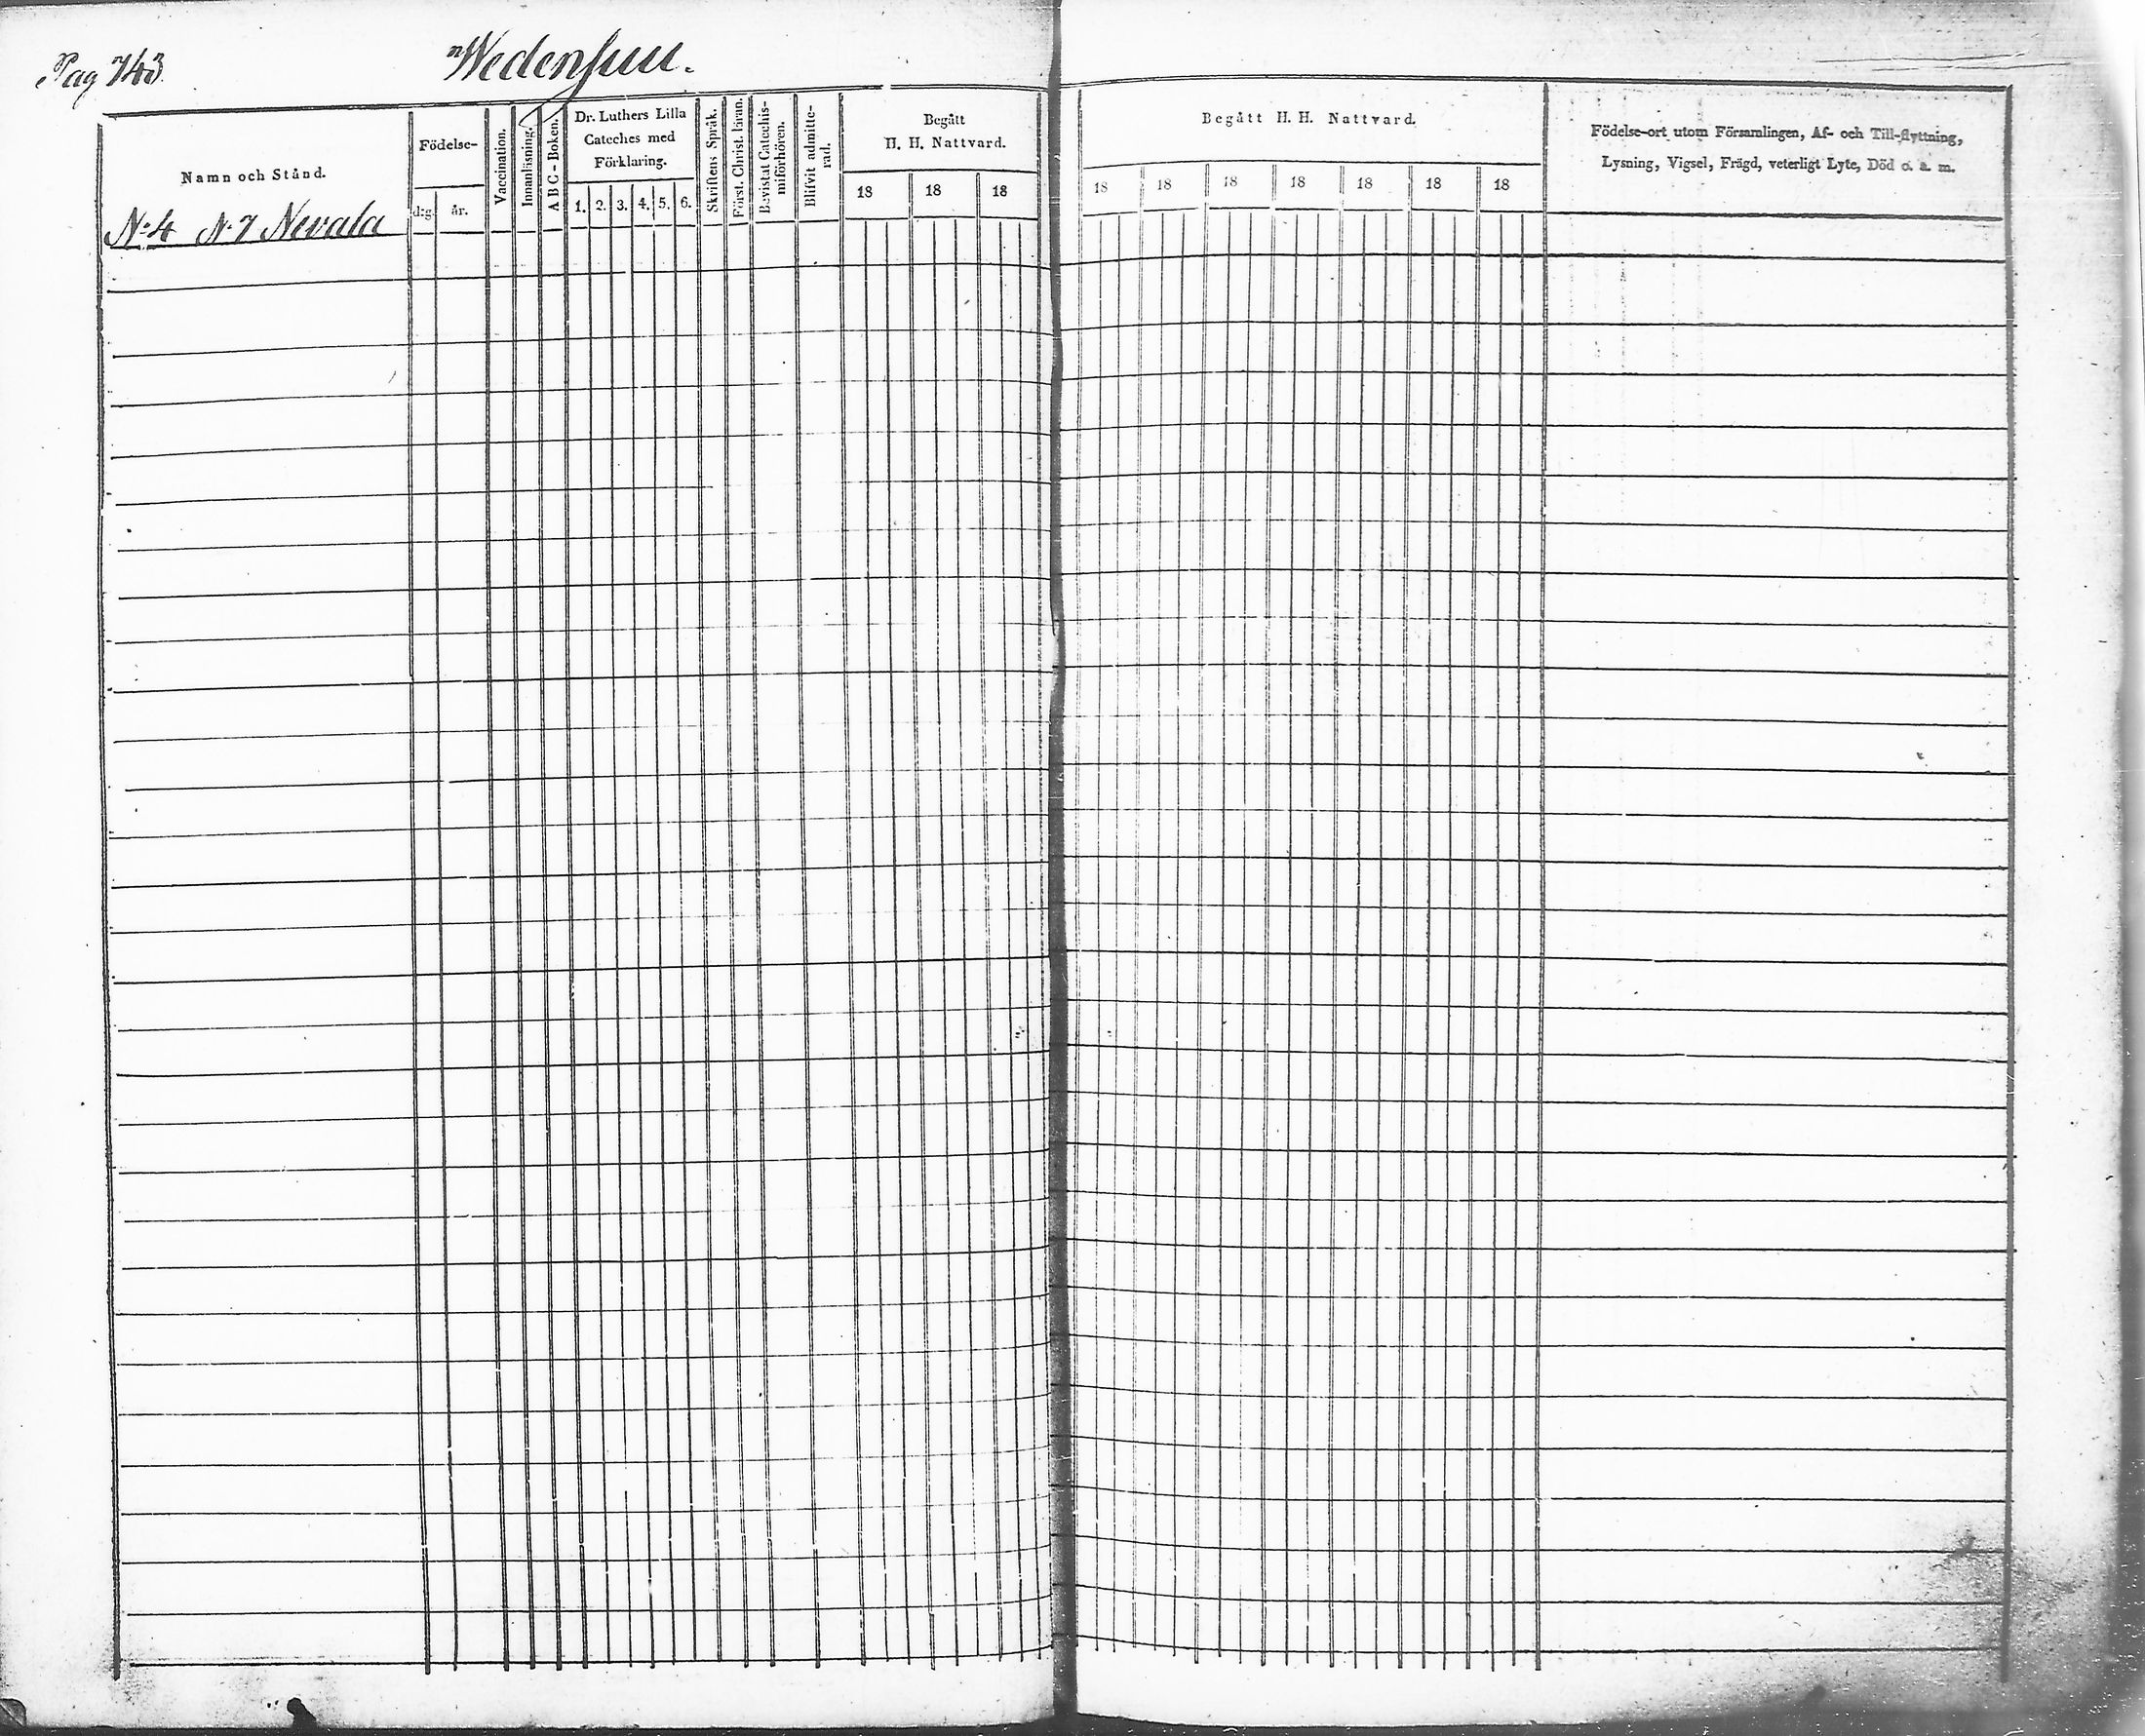 Pag 743.
Wedensuu.
Namn och Stånd.
Födelse-
dag.
år.
Vaccination.
Innanläsning.
A B C - Boken.
Dr. Luthers Lilla
Cateches med
Förklaring.
1. 2. 3. 4. 5. 6.
Skriftens Språk.
Först. Christ. läran.
Bevistat Catechis-
miförhören.
Blifvit admitte-
rad.
Begått
H. H. Nattvard.
18 18 18
N:4 N:7 Nevala
Begått H. H. Nattvard.
18 18 18 18 18 18 18
Födelse-ort utom Församlingen, Af- och Till-flyttning,
Lysning, Vigsel, Frägd, veterligt Lyte, Död o. a. m.